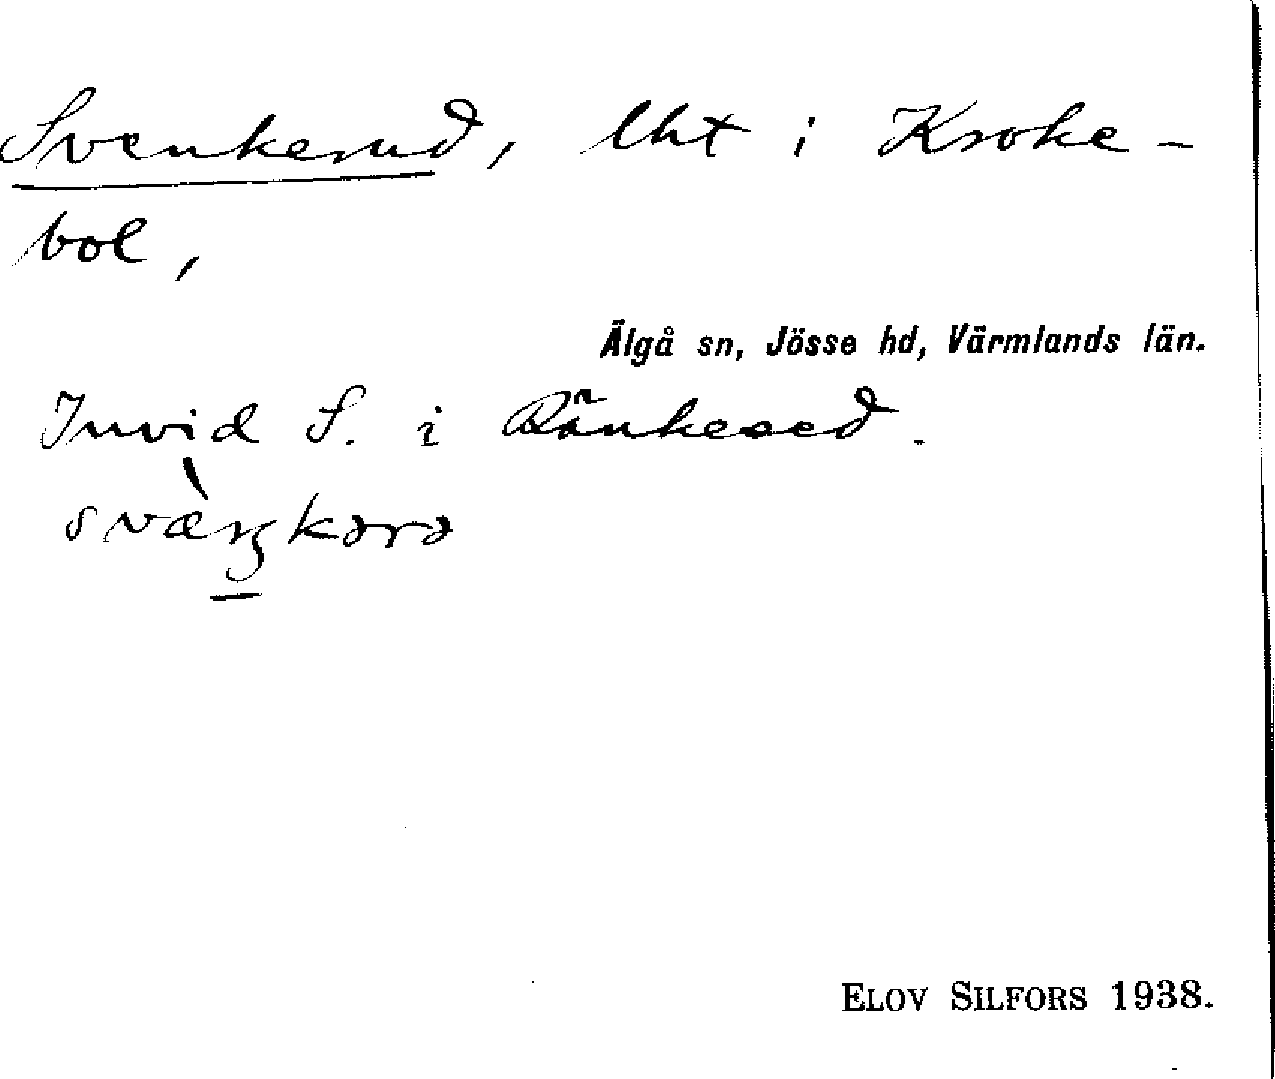 Svenkerud, lht i Kroke-
bol,
Älgå sn, Jösse hd, Värmlands län.
Invid S. i Ränkesed.
ELOV SILFORS 1938.